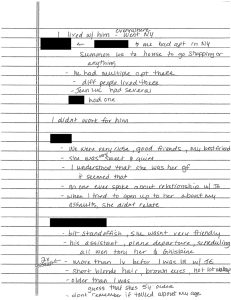 everywhere
I lived w/ him - went NY
← & me had apt in NY
Summon us to home to go shopping or
anything
- he had multiple apt there
- diff people lived there
- Jean Luc had several
had one
I didnt work for him
- We were very close, good friends, my best friend
- She was very sweet & quiet
- I understood that she was her gf
it seemed that
- no one ever spoke about relationship w/ JE
- when I tried to open up to her about my
assaults, she didnt relate
- bit standoffish, she wasnt very friendly
- his assistant, plane departure, scheduling
all then torn her & Ghislaine
- more than 1x befor I was 18 w/ JE
- short blonde hair, brown eyes, not
- older than I was
guess that shes 5y older
- dont remember if talked about my age